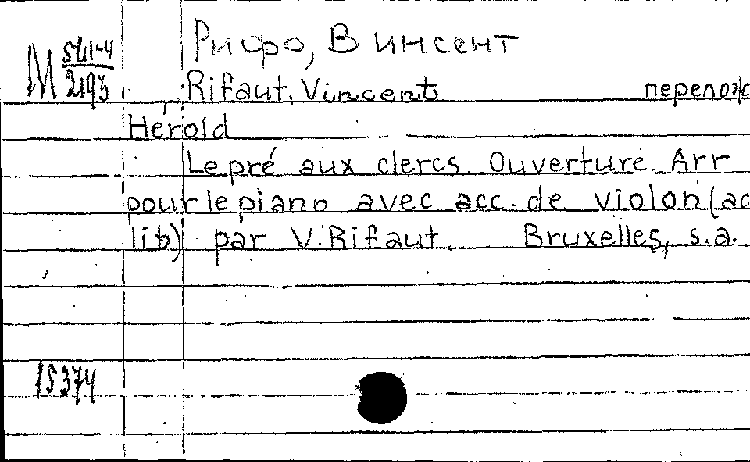 Рифо, Винсент
М 541-4
2193
Rifaut, Vincent перелож
Hérold
Le pré aux clercs. Ouverture. Arr
pour le piano avec acc. de violon (ad
lib) par V. Rifaut. Bruxelles, s.a.
15374